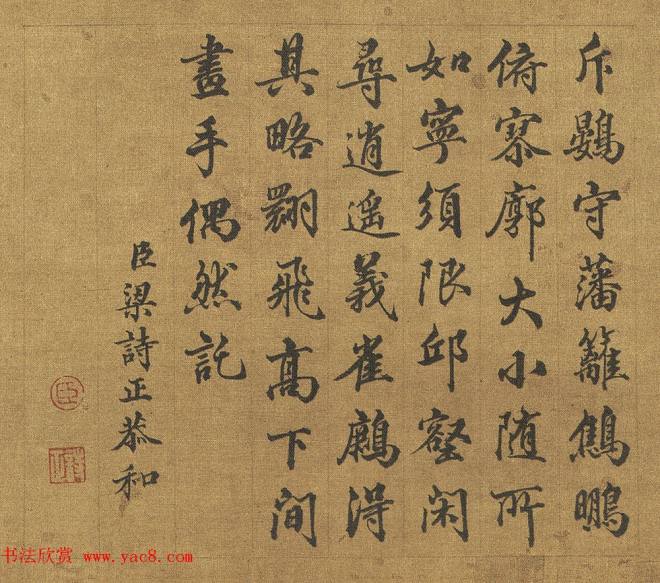 斥鷃守藩籬鶴鵬
俯寥廓大小随所
如寧須限邱壑閑
尋逍遥義雀鷃得
其略翾飛高下間
畫手偶然託
臣梁詩正恭和
臣
书法欣赏 www.yac8.com